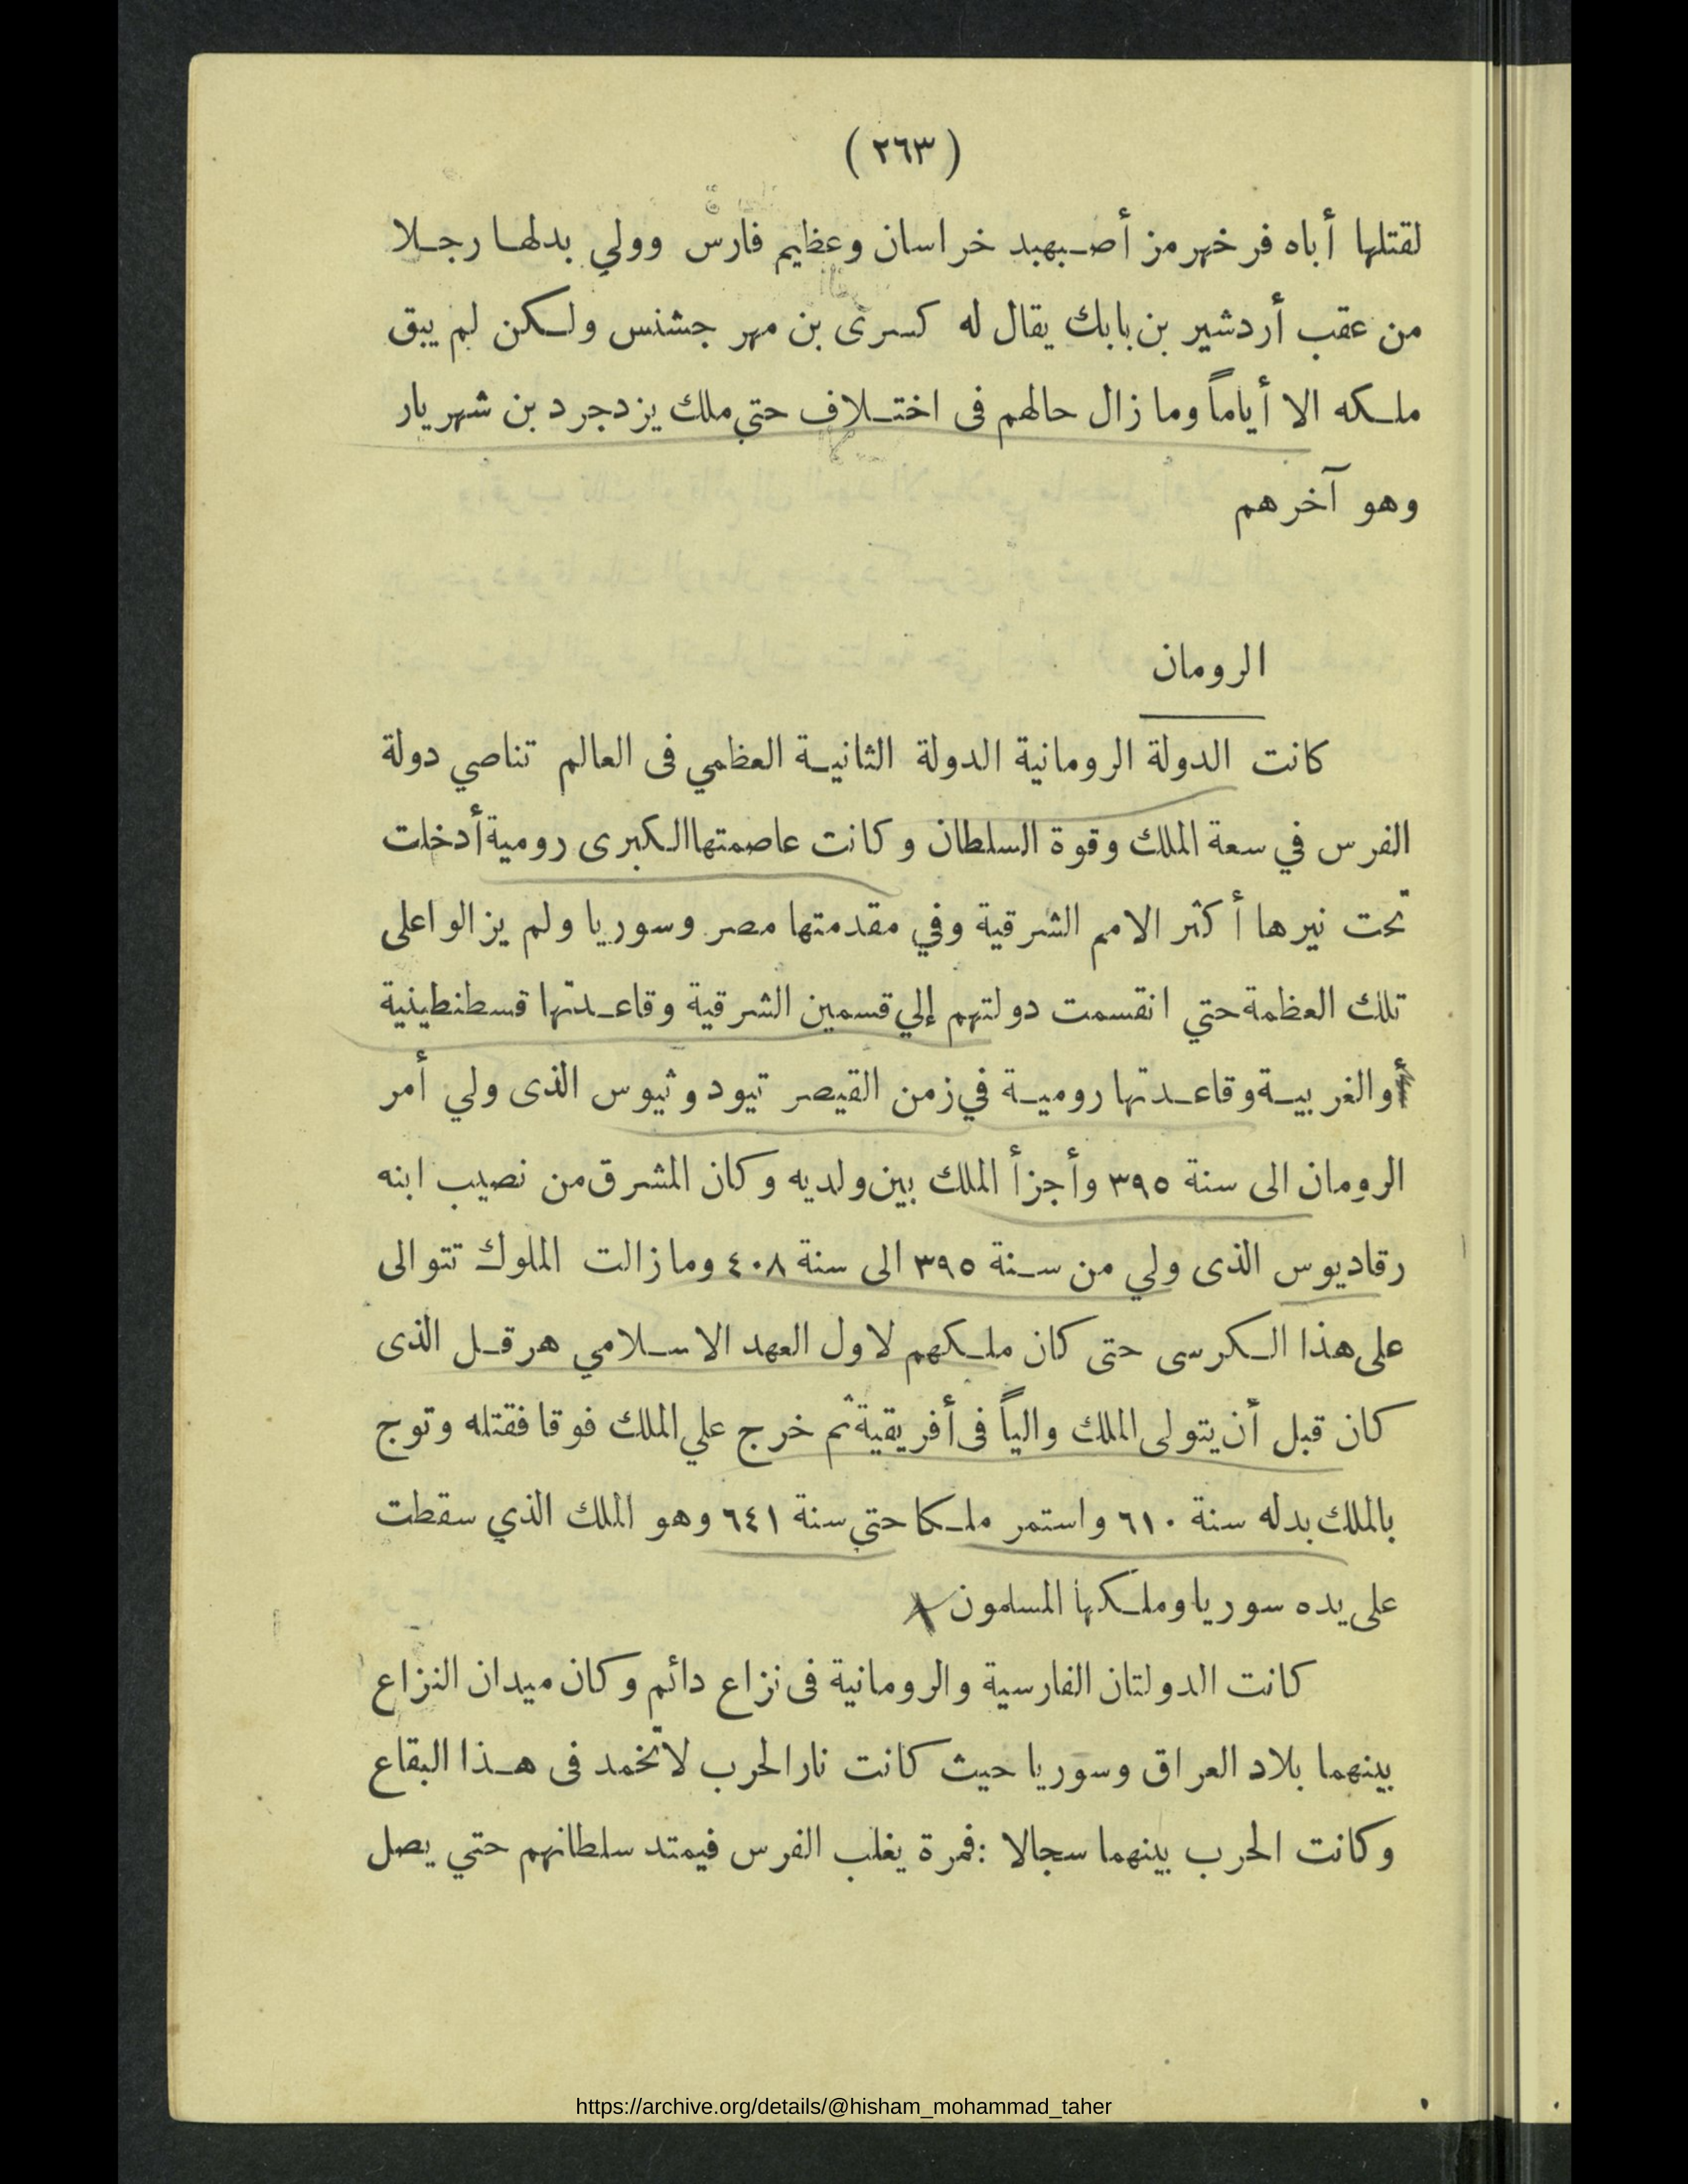 ( ٢٦٣ )
لقتلها أباه فرخهرمز أصبهبد خراسان وعظيم فارس وولي بدلها رجلا
من عقب أردشير بن بابك يقال له كسرى بن مهر جشنس ولكن لم يبق
ملكه الا أياماً وما زال حالهم فى اختلاف حتي ملك يزدجرد بن شهريار
وهو آخرهم
الرومان
كانت الدولة الرومانية الدولة الثانية العظمي فى العالم تناصي دولة
الفرس في سعة الملك وقوة السلطان وكانت عاصمتها الكبرى رومية أدخلت
تحت نيرها أكثر الامم الشرقية وفي مقدمتها مصر وسوريا ولم يزالوا على
تلك العظمة حتي انقسمت دولتهم إلي قسمين الشرقية وقاعدتها قسطنطينية
والغربية وقاعدتها رومية في زمن القيصر تيودوثيوس الذى ولي أمر
الرومان الى سنة ٣٩٥ وأجزأ الملك بين ولديه وكان المشرق من نصيب ابنه
رقاديوس الذى ولي من سنة ٣٩٥ الى سنة ٤٠٨ وما زالت الملوك تتوالى
على هذا الكرسى حتى كان ملكهم لاول العهد الاسلامي هرقل الذى
كان قبل أن يتولى الملك والياً فى أفريقية ثم خرج علي الملك فوقا فقتله وتوج
بالملك بدله سنة ٦١٠ واستمر ملكا حتي سنة ٦٤١ وهو الملك الذي سقطت
على يده سوريا وملكها المسلمون
كانت الدولتان الفارسية والرومانية فى نزاع دائم وكان ميدان النزاع
بينهما بلاد العراق وسوريا حيث كانت نار الحرب لاتخمد فى هذا البقاع
وكانت الحرب بينهما سجالا :فمرة يغلب الفرس فيمتد سلطانهم حتي يصل
https://archive.org/details/@hisham_mohammad_taher